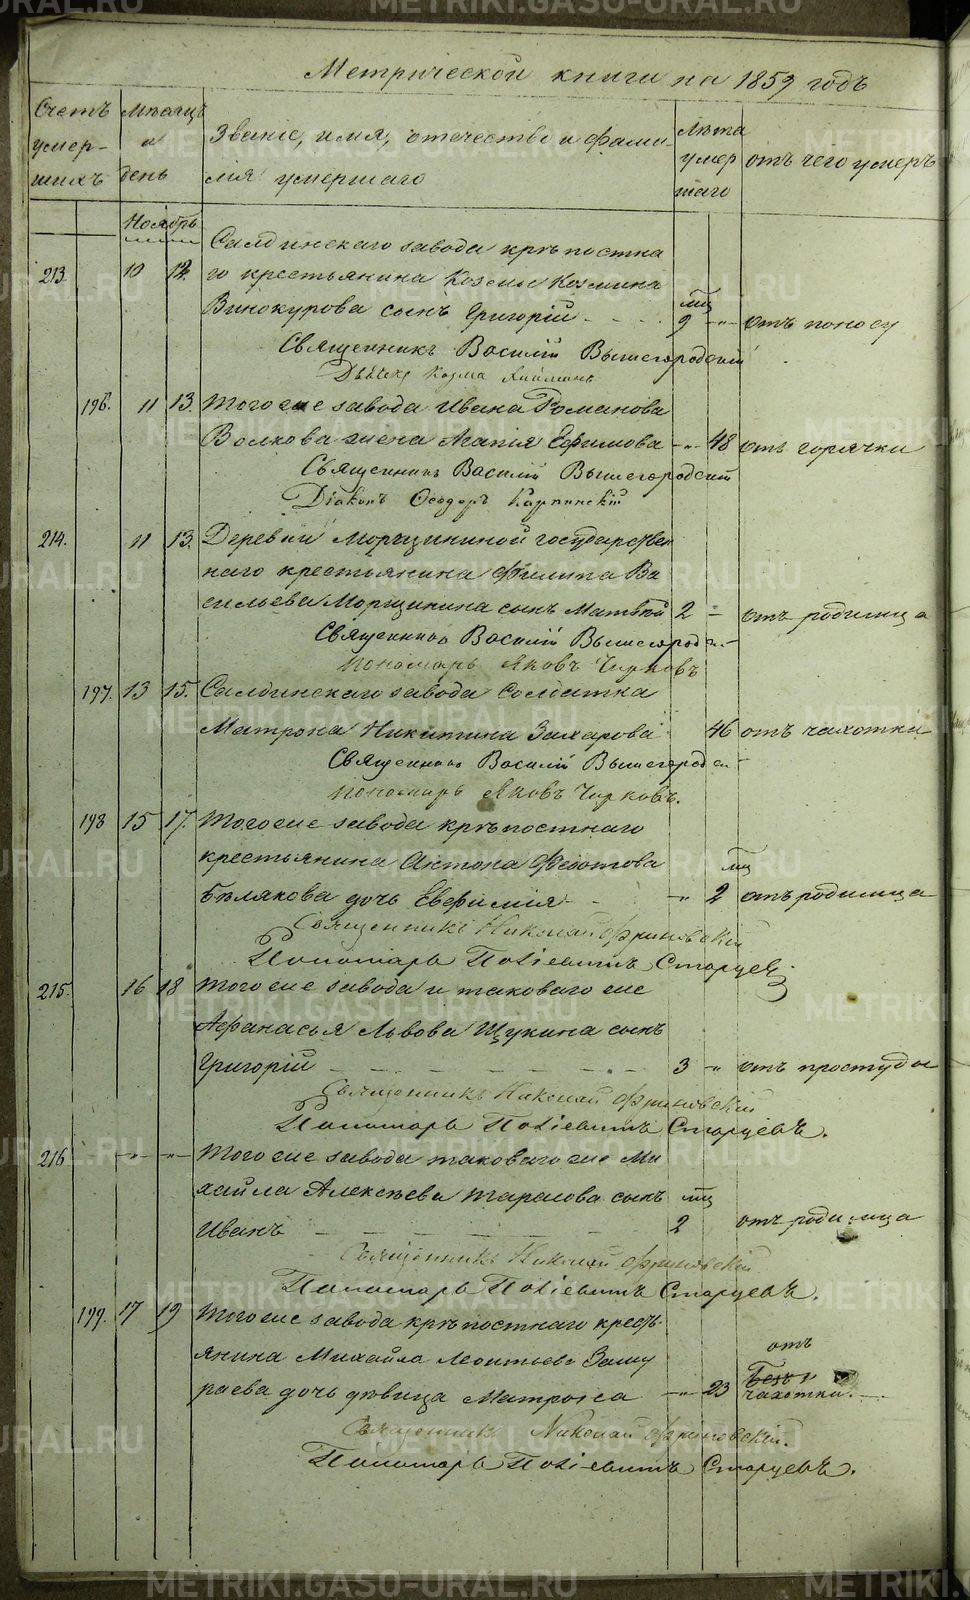 Метрической книги на 1859 годъ
Счетъ умер-шихъ
Мѣсяцъ и день
Званіе, имя, отечество и фами-
лія умершаго
Лѣта умершаго
отъ чего умеръ
Ноябрь
Салдинскаго завода крѣпостна
213. 10 12. го крестьянина Козмы Козмина
Винокурова сынъ Григорій мц 9 „ отъ поносу
Священникъ Василій Вышегородскій
196. 11 13. Тогоже завода Ивана Романова
Волкова жена Агапія Ефимова „ 48 отъ горячки
Священникъ Василій Вышегородскій
Діаконъ Ѳеодоръ Карпинскій
214. 11 13. Деревни Морщининой государствен
наго крестьянина Филипа Ва
сильева Морщинина сынъ Матвѣй 2 – отъ родимца
Священникъ Василій Вышегородс.
Пономарь Яковъ Чирковъ
197. 13 15. Салдинскаго завода Солдатка
Матрона Никитина Захарова 46 отъ чахотки
Священникъ Василій Вышегородс.
Пономарь Яковъ Чирковъ.
198 15 17. Тогоже завода крѣпостнаго
крестьянина Антона Федотова мц
Бѣлякова дочь Евфимія „ 2 отъ родимца
Священникъ Николай Фриновскій
Пономарь Повіевитъ Старцевъ
215. 16 18 Тогоже завода и таковаго же
Афанасья Львова Щукина сынъ
Григорій 3 „ отъ простуды
Священникъ Николай Фриновскій
Пономарь Повіевитъ Старцевъ.
216 „ „ Тогоже завода таковаго же Ми
хайла Алексѣева Тарасова сынъ мц
Иванъ 2 отъ родимца
Священникъ Николай Фриновскій
Пономарь Повіевитъ Старцевъ.
199. 17 19 Тогоже завода крѣпостнаго крест
янина Михайла Леонтьева Зашу отъ
раева дочь дѣвица Матрона „ 23 чахотки.
Священникъ Николай Фриновскій.
Пономарь Повіевитъ Старцевъ.
METRIKI.GASO-URAL.RU